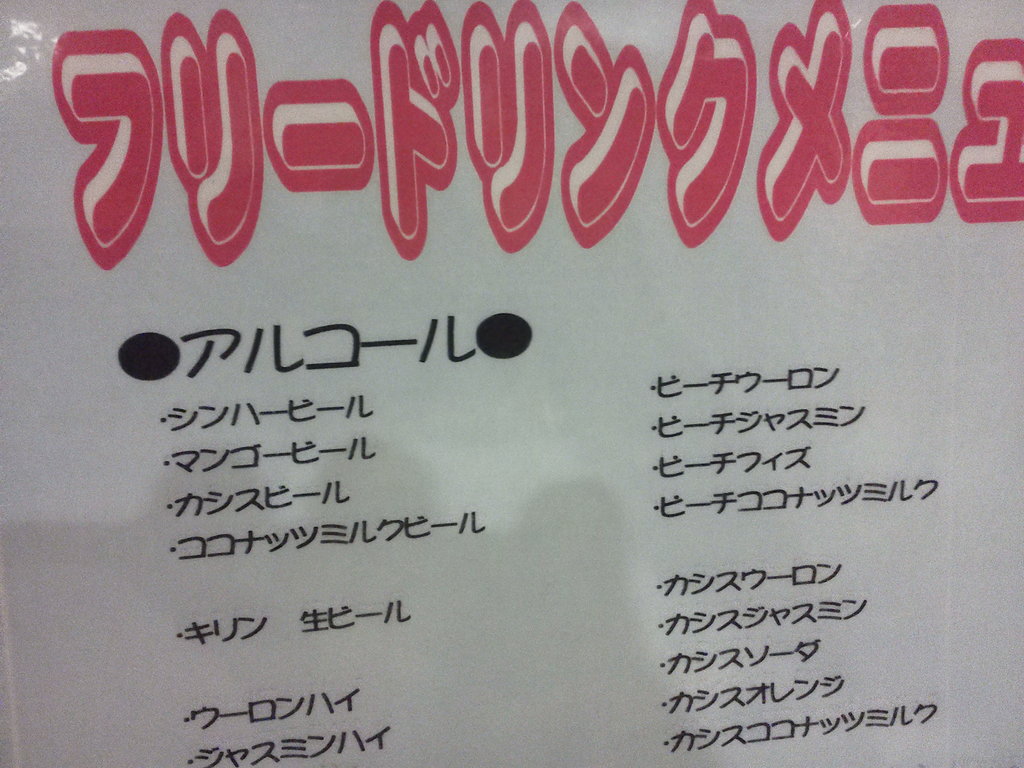 フリードリンクメニュ
●アルコール●
・シンハービール
・マンゴービール
・カシスビール
・ココナッツミルクビール
・キリン 生ビール
・ウーロンハイ
・ジャスミンハイ
・ピーチウーロン
・ピーチジャスミン
・ピーチフィズ
・ピーチココナッツミルク
・カシスウーロン
・カシスジャスミン
・カシスソーダ
・カシスオレンジ
・カシスココナッツミルク